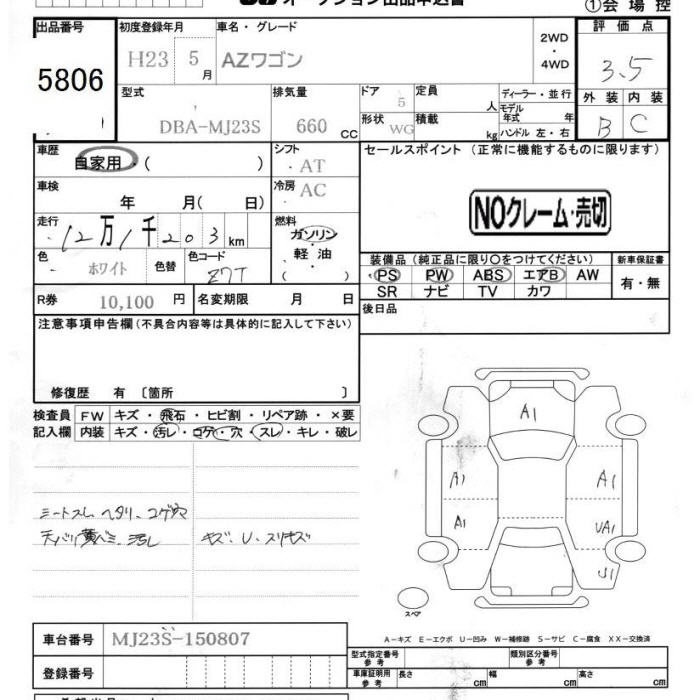 オークション出品申込書 ①会場控
出品番号 初度登録年月 車名・グレード 2WD・4WD 評価点
5806 H23 5月 AZワゴン 3.5
型式 排気量 ドア 定員 ディーラー・並行 外装 内装
DBA-MJ23S 660cc 5 人 モデル年式 年 B C
形状 WG 積載 kg ハンドル 左・右
車歴 自家用・( ) シフト ・AT セールスポイント (正常に機能するものに限ります)
車検 年 月( 日) 冷房 AC
NOクレーム・売切
走行 12万1千203km 燃料 ガソリン 軽油 ( )
色 ホワイト 色替 色コード Z7T
装備品(純正品に限り○をつけてください) 新車保証書
PS PW ABS エアB AW 有・無
SR ナビ TV カワ
R券 10,100円 名変期限 月 日 後日品
注意事項申告欄(不具合内容等は具体的に記入して下さい)
修復歴 有〔箇所 〕
検査員 FW キズ・飛石・ヒビ割・リペア跡・×要
記入欄 内装 キズ・汚レ・コゲ・穴・スレ・キレ・破レ
A1
A1 A1
A1 UA1
U1
シートスレ、ヘタリ、コゲ穴
天バリ黄バミ、汚レ キズ、U、スリキズ
スペア
車台番号 MJ23S-150807
A-キズ E-エクボ U-凹み W-補修跡 S-サビ C-腐食 XX-交換済
型式指定番号 参考 類別区分番号 参考
登録番号 車庫証明用 参考 長さ cm 幅 cm 高さ cm